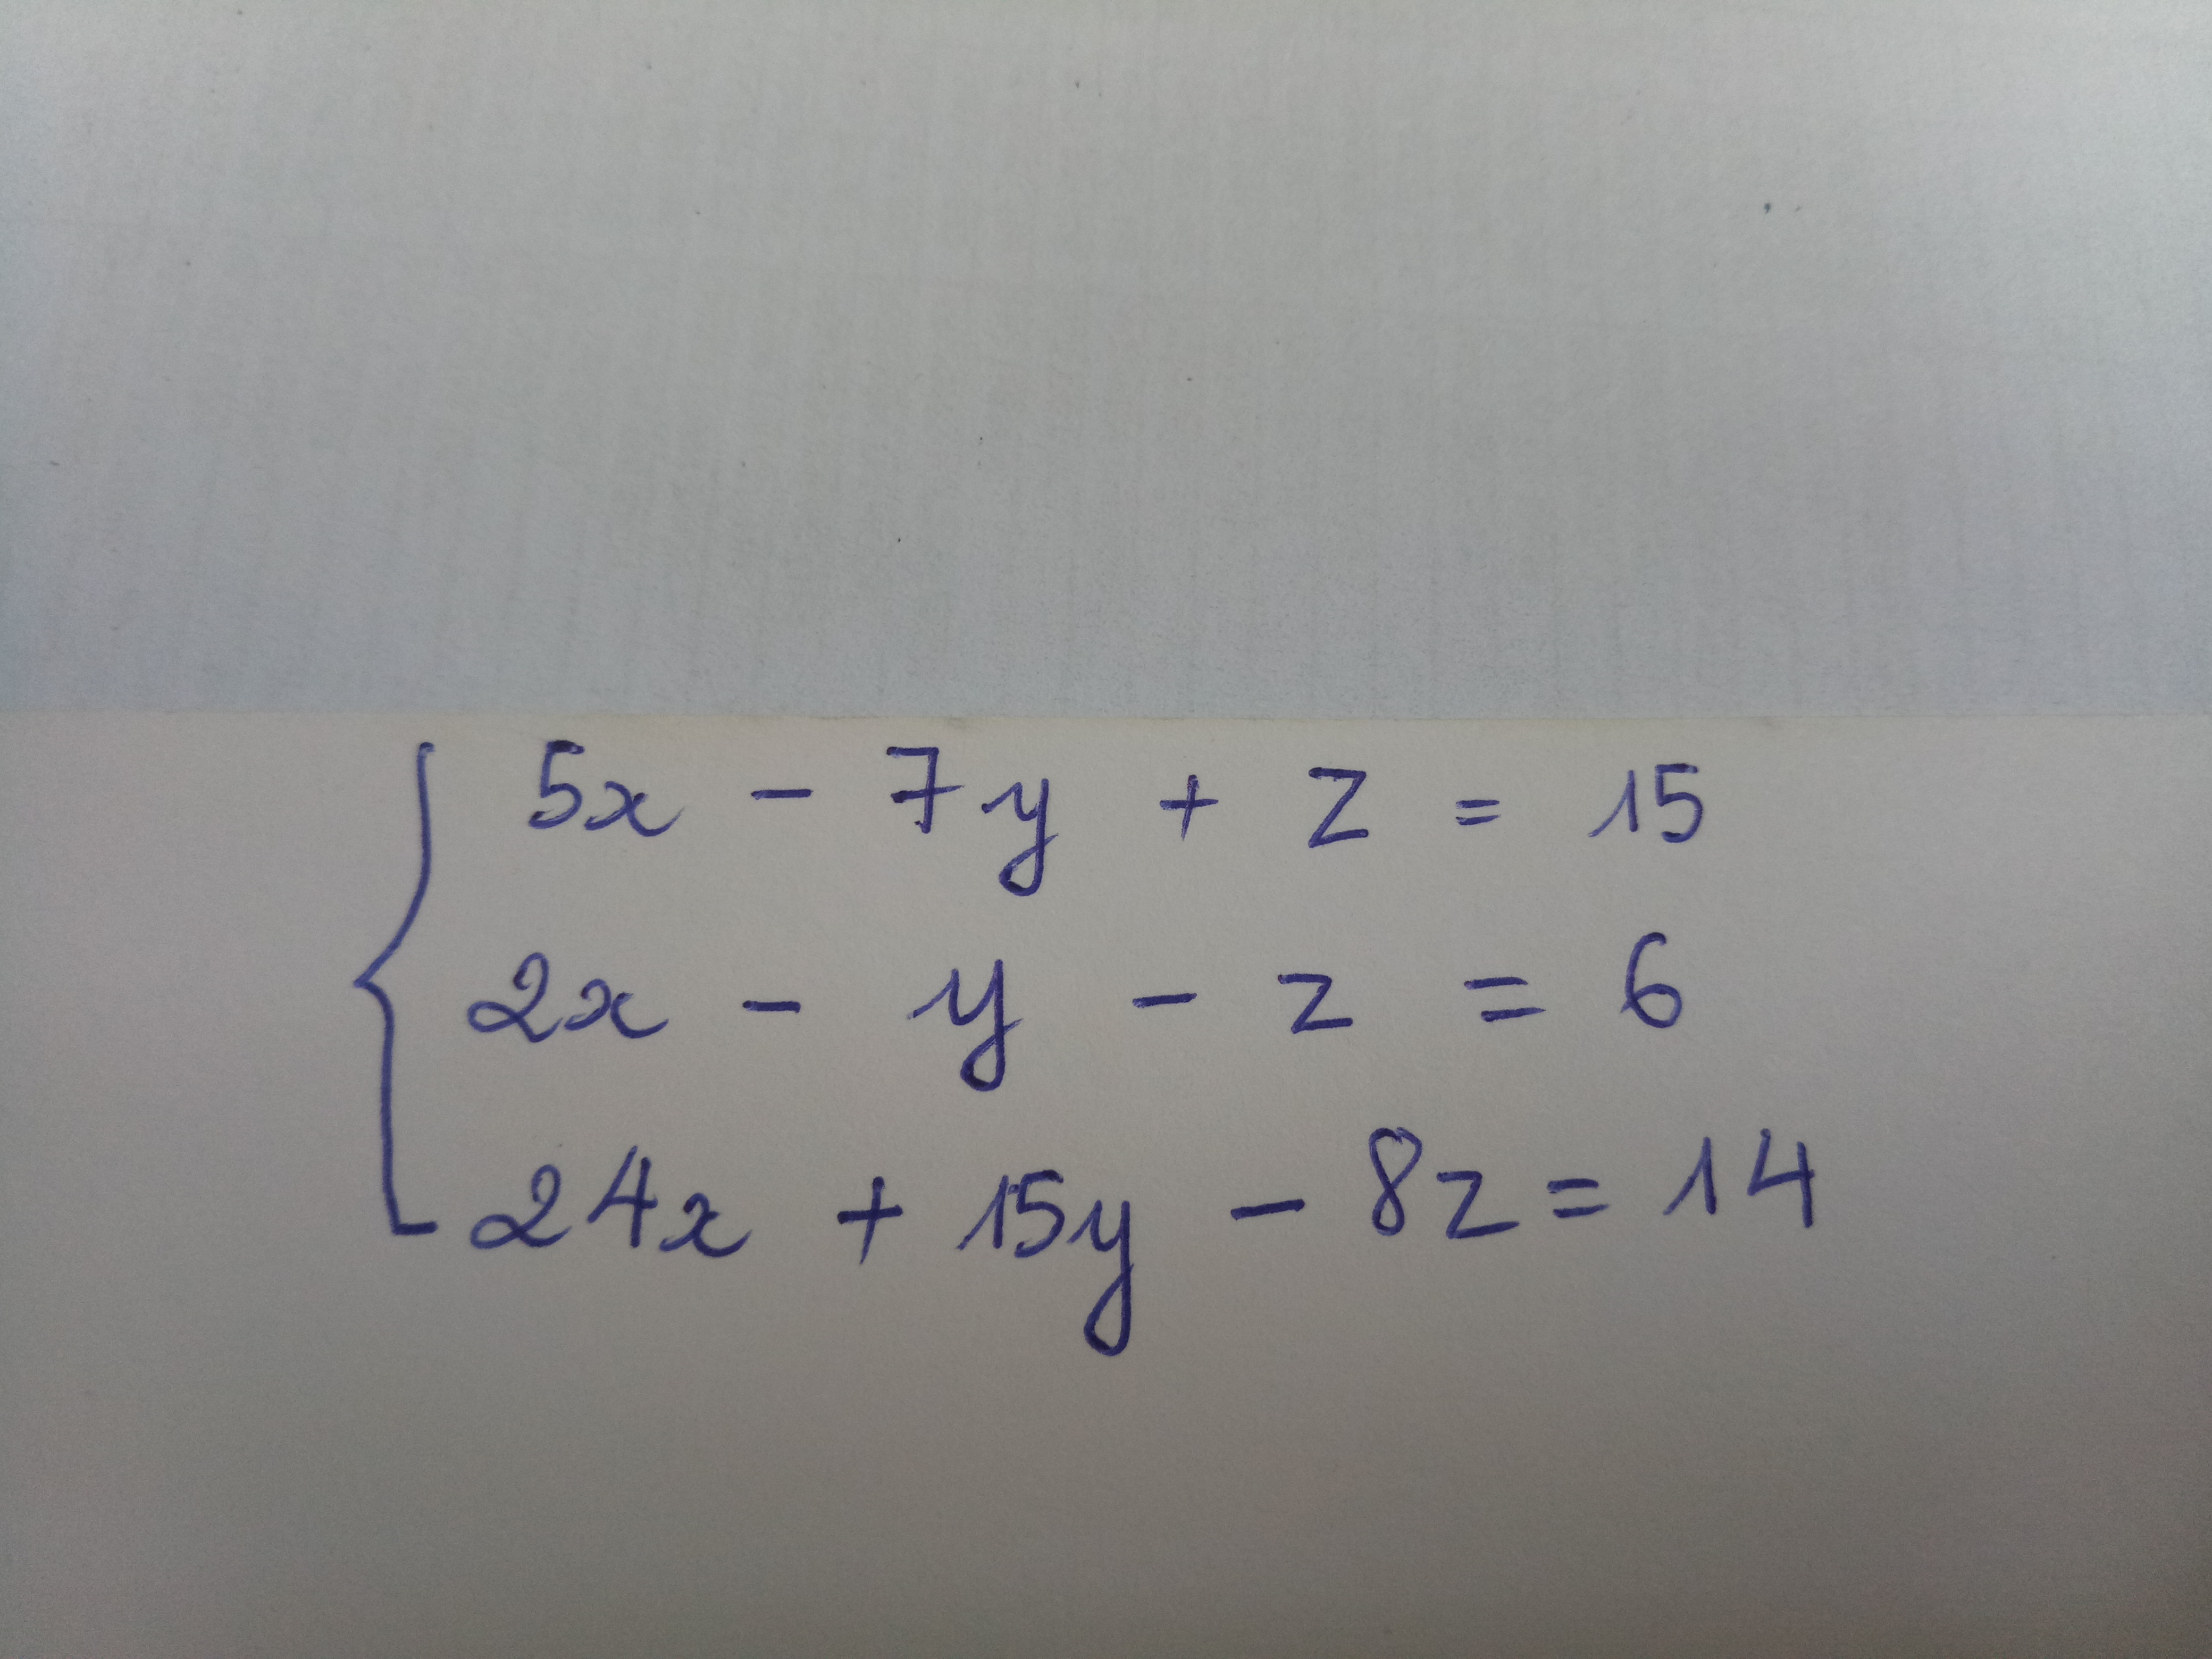 5x - 7y + z = 15
2x - y - z = 6
24x + 15y - 8z = 14